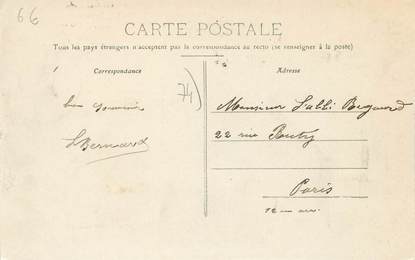 66
CARTE POSTALE
Tous les pays étrangers n'acceptent pas la correspondance au recto (se renseigner à la poste)
Correspondance
Adresse
74)
bon souvenir
Monsieur l'abbé
LBernard
22 rue
Paris
12me arr.